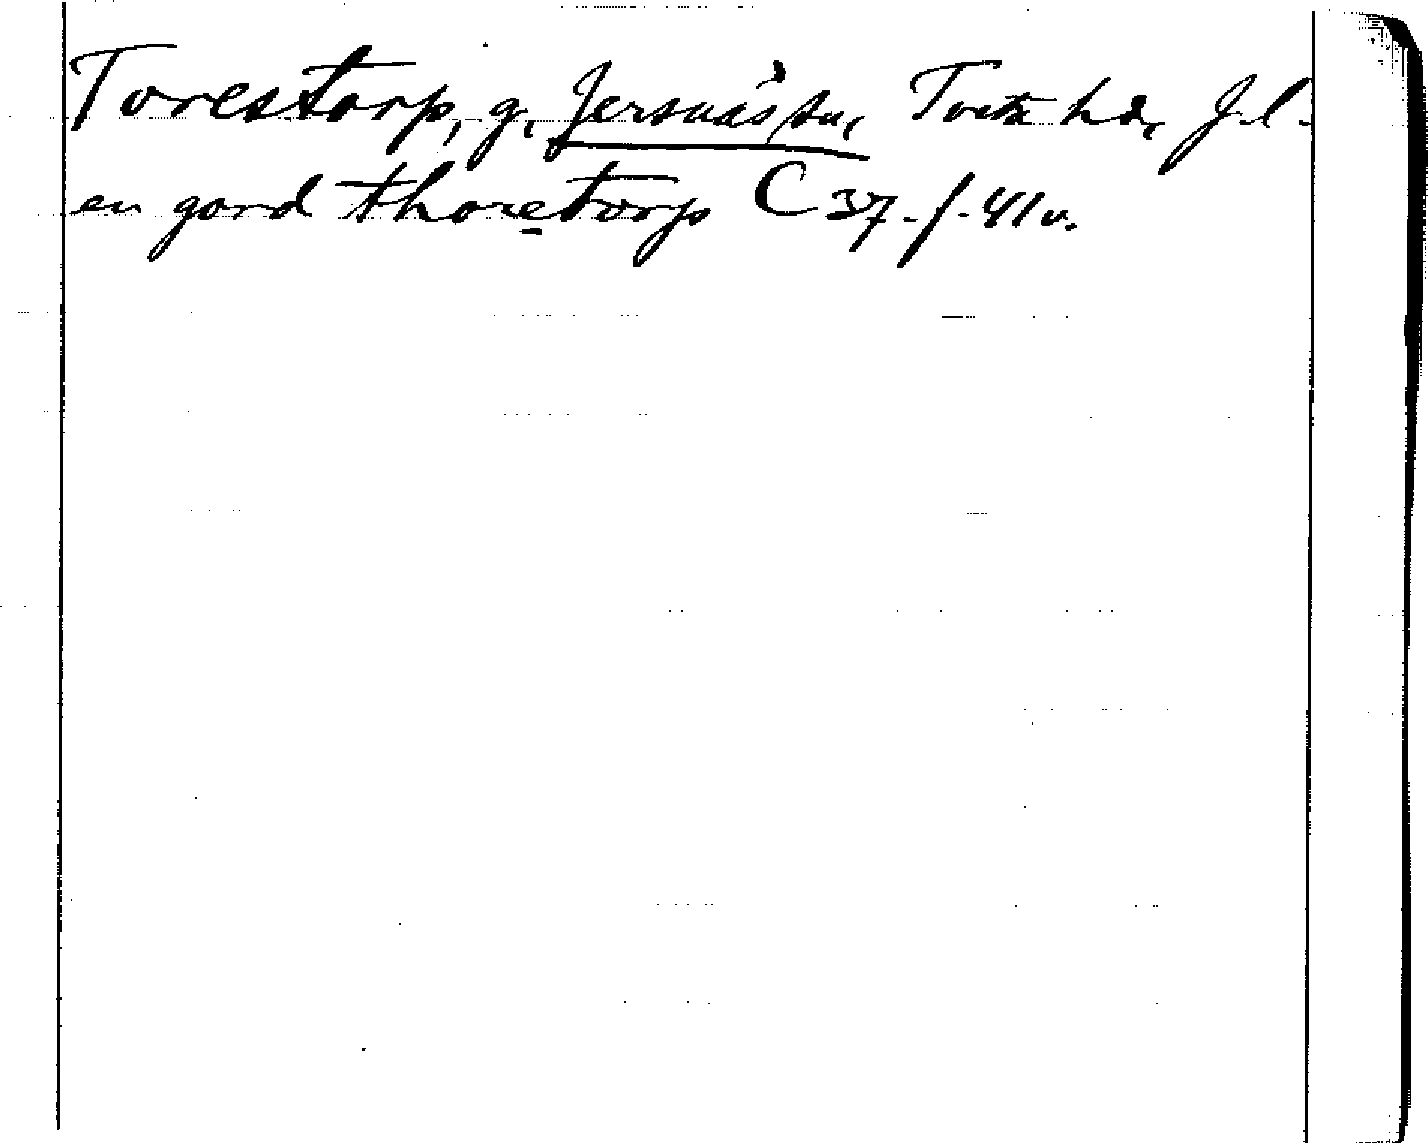 Torestorp, g, Jersnäs sn, Tveta hd, J.l.
en gard thoretorp C 37. f. 41 v.